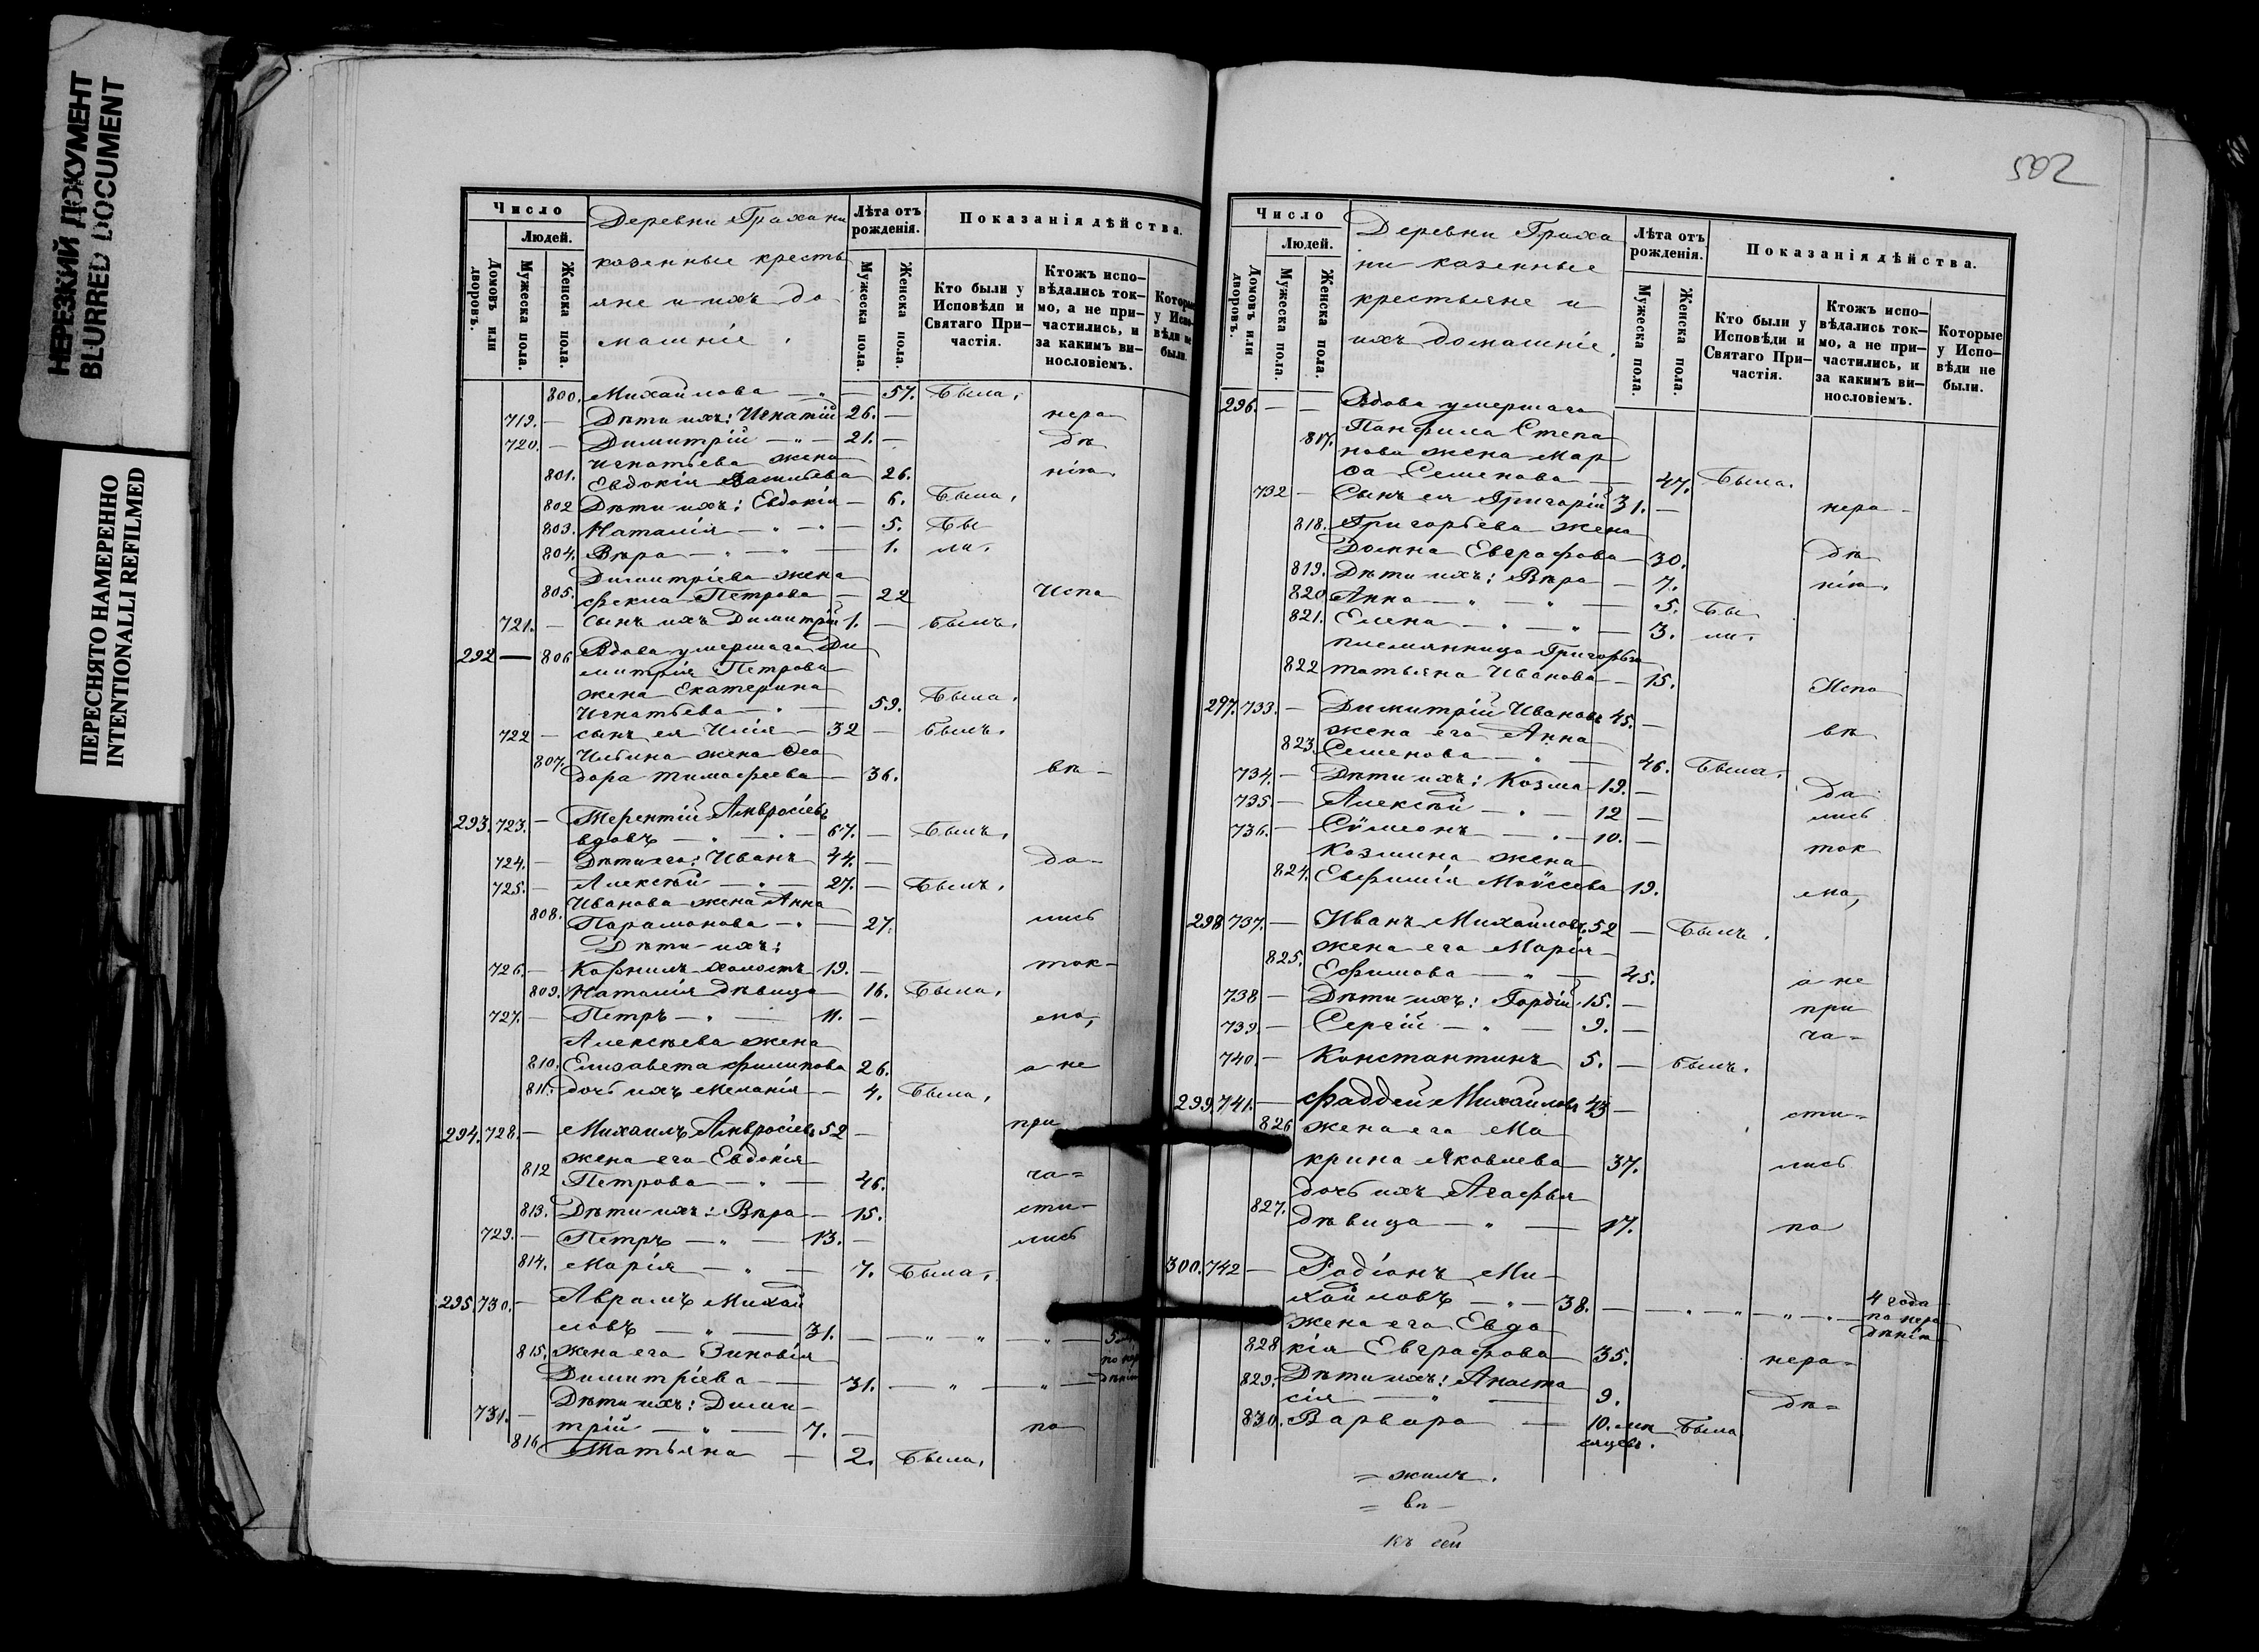 НЕРЕЗКИЙ ДОКУМЕНТ
BLURRED DOCUMENT
ПЕРЕСНЯТО НАМЕРЕННО
INTENTIONALLI REFILMED
Число
Людей.
Домовъ или дворовъ.
Мужеска пола.
Женска пола.
Деревни Грахани
казенные кресть
яне и ихъ до-
машніе.
Лѣта отъ рожденія.
Мужеска пола.
Женска пола.
Показанія дѣйства.
Кто были у Исповѣди и Святаго Причастія.
Ктожъ исповѣдались токмо, а не причастились, и за какимъ винословіемъ.
Которые у Исповѣди не были.
800. Михайлова — 57. Была.
719. — Дѣти ихъ: Игнатій 26. — нера
720. — Димитрій — 21. — дѣ
Игнатьева жена
801. Евдокія Васильева 26. нію.
802 Дѣти ихъ: Евдокія — 6. Была.
803. Наталія — 5. Бы
804. Вѣра — 1. ли.
Димитріева жена
805. Фекла Петрова — 22 Испо
721. — Сынъ ихъ Димитрій 1. — Былъ.
292 — 806 Вдова умершаго Ди
митрія Петрова
жена Екатерина
Игнатьева — 59. Была.
722 — сынъ ея Илія — 32 — Былъ.
807. Ильина жена Ѳео
дора Тимофеева — 36. вѣ —
293. 723. — Терентій Амвросіевъ
вдовъ — 67. — Былъ.
724. — Дѣти его: Иванъ 44. — да —
725. — Алексѣй — 27. — Былъ.
Иванова жена Анна
808. Парамонова — 27. лись
Дѣти ихъ:
726. — Корнилъ холостъ 19. — ток —
809. Наталія дѣвица — 16. Была.
727. — Петръ — 11. — мо,
Алексѣева жена
810. Елисавета Филипова 26. а не
811. дочь ихъ Меланія — 4. Была.
294. 728. — Михаилъ Амвросіевъ 52 — при
жена его Евдокія
812 Петрова — 46. ча =
813. Дѣти ихъ: Вѣра — 15. сти —
729. — Петръ — 13. — лись
814. Марія — 7. Была.
295. 730. — Аврамъ Михай
ловъ — 31. —
815. жена его Зиновія
Димитріева — 31.
Дѣти ихъ: Дими —
731. — трій — 7. — по
816 Татьяна — 2. Была.
502
Число
Людей.
Домовъ или дворовъ.
Мужеска пола.
Женска пола.
Деревни Граха
ни казенные
крестьяне и
ихъ домашніе.
Лѣта отъ рожденія.
Мужеска пола.
Женска пола.
Показанія дѣйства.
Кто были у Исповѣди и Святаго Причастія.
Ктожъ исповѣдались токмо, а не причастились, и за какимъ винословіемъ.
Которые у Исповѣди не были.
296. — — Вдова умершаго
817. Панфила Степа
нова жена Мар
ѳа Семенова — 47. Была.
732 — Сынъ ея Григорій 31. — нера —
818. Григорьева жена
Домна Евграфова — 30. дѣ
819. Дѣти ихъ: Вѣра — 7. нію.
820 Анна — 5. Бы
821. Елена — 3. ли.
племянница Григорья
822 Татьяна Иванова — 15. Испо
297. 733. — Димитрій Ивановъ 45. —
жена его Анна вѣ
823. Семенова — 46. Была.
734. — Дѣти ихъ: Козма — 19. — да
735. — Алексѣй — 12 — лись
736. — Сѵмеонъ — 10. —
Козмина жена ток
824. Евфимія Моѵсеева 19. мо,
298 737. — Иванъ Михайловъ 52 — Былъ.
жена его Марія
825. Ефимова — 45. а не
738 — Дѣти ихъ: Гордій 15. — при
739. — Сергій — 9. — ча =
740. — Константинъ 5. — Былъ.
299. 741. — Фаддей Михайловъ 43 — сти =
826 жена его Ма
крина Яковлева — 37. лись
дочь ихъ Агафья
827. дѣвица — 17. по
300. 742 — Родіонъ Ми —
хайловъ — 38. — 4 года по нера дѣнію
жена его Евдо
828 кія Евграфова 35. нера =
829. Дѣти ихъ: Анаста
сія — 9. дѣ =
830. Варвара — 10. мѣ сяцевъ. Была
= жилъ.
= вѣ —